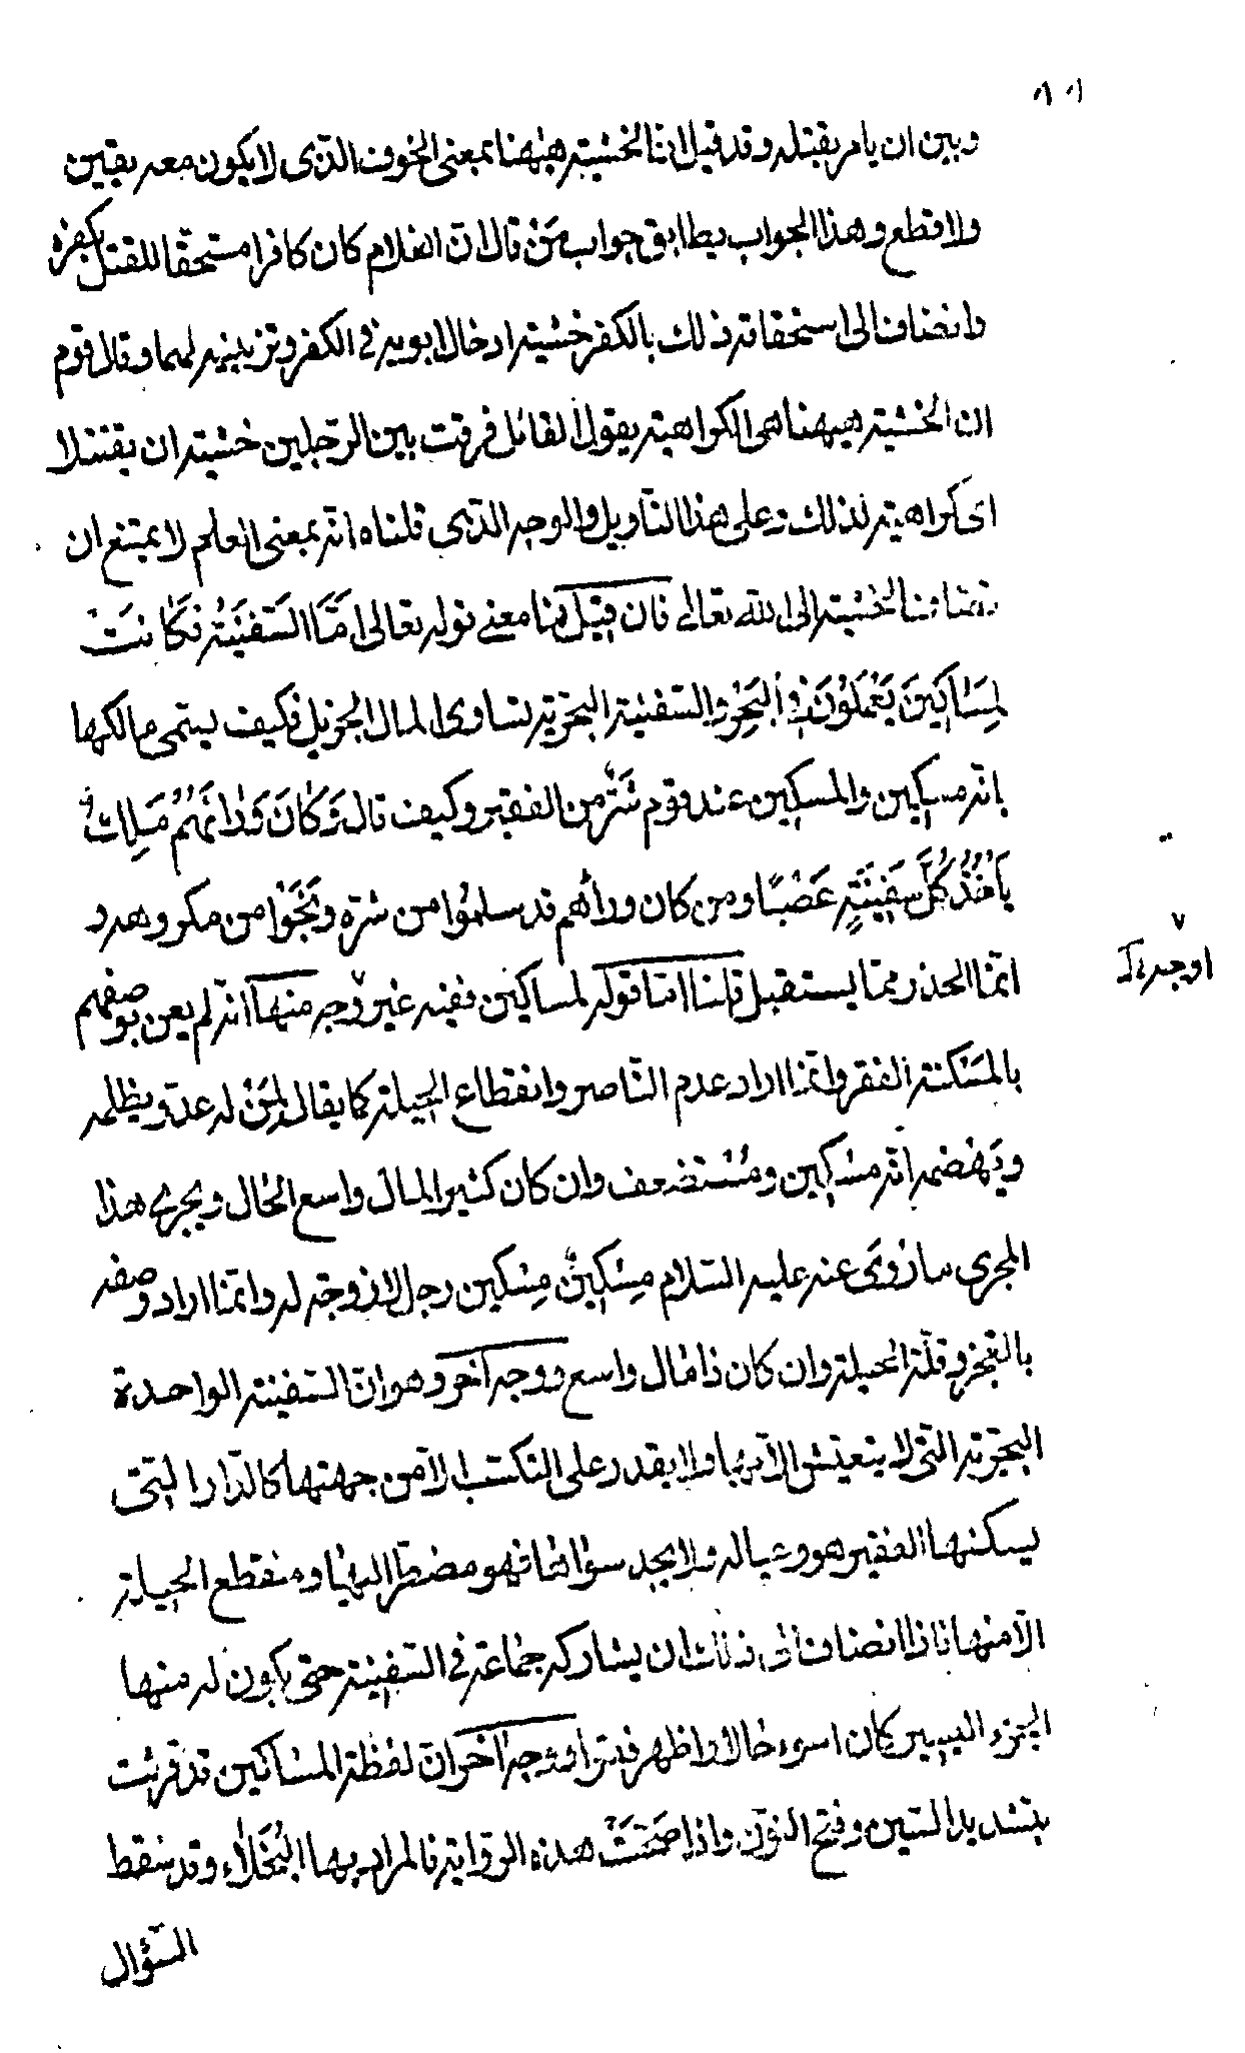 وبين ان يامر بقتله وقد قيل انّ الخشية هيهنا بمعنى الخوف الّذى لا يكون معه يقين
ولا قطع وهذا الجواب يطابق جواب مَنْ قال انّ الغلام كان كافرا مستحقّا للقتل بكفره
وانضاف الى استحقاقه ذلك بالكفر خشية ادخال ابويه فى الكفر وتزيينه لهما وقال قوم
ان الخشية هيهنا هى الكراهية يقول القائل فرقت بين الرّجلين خشية ان يقتتلا
اى كراهية لذلك وعلى هذا التّأويل والوجه الّذى قلناه انّه بمعنى العلم لا يمتنع ان
تضاف الخشية الى الله تعالى فان قيل فما معنى قوله تعالى امّا السّفينة فكانت
لِمَسَاكِينَ يَعْمَلُونَ فِى البَحْرِ والسّفينة البحريّة تساوى المال الجزيل فكيف يسمّى مالكها
بانّه مسكين والمسكين عند قوم شَرٌّ من الفقير وكيف قال وَكَانَ وَرَاءَهُمْ مَلِكٌ
يَأْخُذُ كُلَّ سَفِينَةٍ غَصْبًا ومن كان ورائهم قد سلموا من شرّه ونَجَوْا من مكروهه و
انّما الحذر ممّا يستقبل قلنا امّا قوله لمساكين ففيه غير وجه منها انّه لم يعن بوصفهم
اوجه
بالمَسْكنة الفقر وانّما اراد عدم النّاصر وانقطاع الحيلة كما يقال لِمَنْ له عدوّ يظلمه
ويَهْضمه انّه مسكين ومُسْتضعف وان كان كثير المال واسع الحال ويجرى هذا
المجرى ما رُوىَ عنه عليه السّلام مِسْكِينٌ مِسْكين رجل لا زوجة له وانّما اراد وصفه
بالعَجْز وقلّة الحيلة وان كان ذا مال واسع ووجه آخر وهو انّ السّفينة الواحدة
البحريّة الّتى لا يتعيّش الّا بها ولا يقدر على التّكسّب الّا من جهتها كالدّار الّتى
يسكنها الفقير هو وعياله ولا يجد سواها فهو مضطرّ اليها ومنقطع الحيلة
الّا منها فاذا انضاف الى ذلك ان يشاركه جماعة فى السّفينة حتى يكون له منها
الجزء اليسير كان اسوء حالا واظهر فقرا ووجه آخر انّ لفظة المساكين قد قرئت
بتشديد السّين وفتح النّون واذا صَحَّتْ هذه الرّواية فالمراد بها البُخَلاء وقد سقط
السّؤال